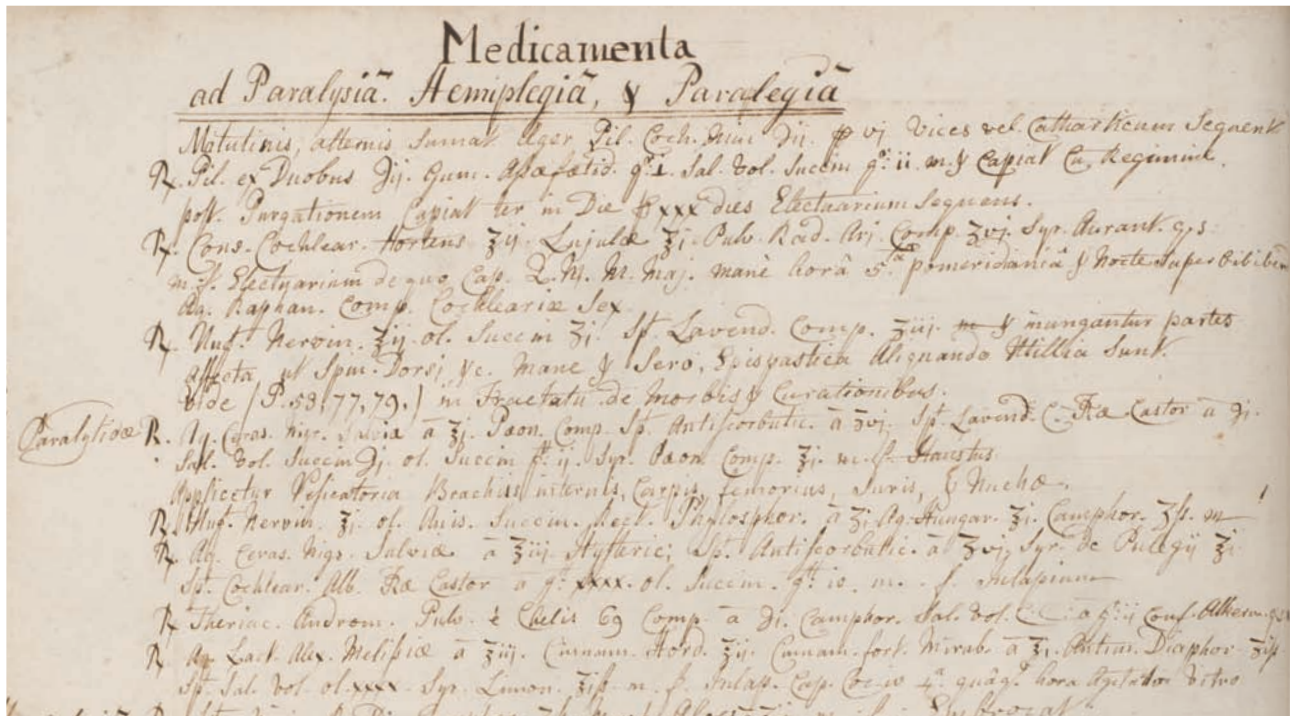 Medicamenta
ad Paralysiã. Hemiplegiã, & Paralegiã
Matutinis, alternis Sumat Æger Pil. Coch. Min ℈ij. vj Vices vel Catharticum Sequent
℞. Pil. ex Duobus ℈ij. Gum. Asafœtid. Sal. Vol. Succin gr. ii. m. & Capiat Cu. Regimine.
post. Purgationem Capiat ter in Die xxx dies Electuarium Sequens.
℞. Cons. Cochlear. Hortens ℥ij. Lujulæ ℥j. Pulv. Rad. Ari. Comp. ʒvj. Syr. Aurant. q.s
m. f. Electuarium de quo Cap. Q. M. M. Maj. manè horâ 5.ª pomeridianâ & Nocte Super bibiben
Aq. Raphan. Comp. Cochleariæ Sex.
℞. Ung. Nervin. ℥ij. ol. Succin ʒj. Spt. Lavend. Comp. ʒiij. m & inungantur partes
affecta ut Spin. Dorsi &c. Mane & Sero, Epispastica Aliquando Utillia Sunt.
Vide (P. 53, 77, 79.) in Tractatu de Morbis & Curationibus.
Paralyticæ ℞. Aq. Ceras. Nigr. Salviæ ā ℥j. Pæon. Comp. Spt. Antiscorbutic. ā ʒvj. Spt. Lavend. C. Castor ā ʒj.
Sal. Vol. Succin ℈j. ol. Succin ij. Syr. Pæon. Comp. ℥j. m. f. Haustus.
Applicetur Vesicatoria Brachiis internis, Carpis, femorius, Suris, & Nuchæ.
℞. Ung. Nervin. ℥j. ol. Anis. Succin. Phylosphor. ā ʒj. Aq. Hungar. ʒj. Camphor. ʒß. m
℞. Aq. Ceras. Nigr. Salviæ ā ℥iij. Hysteric; Spt. Antiscorbutic. ā ʒvj. Syr. de Pulegij ℥j
Spt. Cochlear. Alb. Castor ā gt. xxxx. ol. Succin. gtt. m. f. Julapium
℞. Theriac. Androm. Pulv. è Chelis 69 Comp. ā ℈j. Camphor. Sal. Vol. Conf. Alkerm. q.s
℞. Aq. Lact. Alex. Melissæ ā ℥iij. Cinnam. Hord. ℥ij. Cinnam. fort. Mirab. ā ℥j. Antim. Diaphor
Spt. Sal. Vol. ol. xxxx. Syr. Limon. m. f. Julap. Cap. 4.ª quâq. hora Agitator Vitro